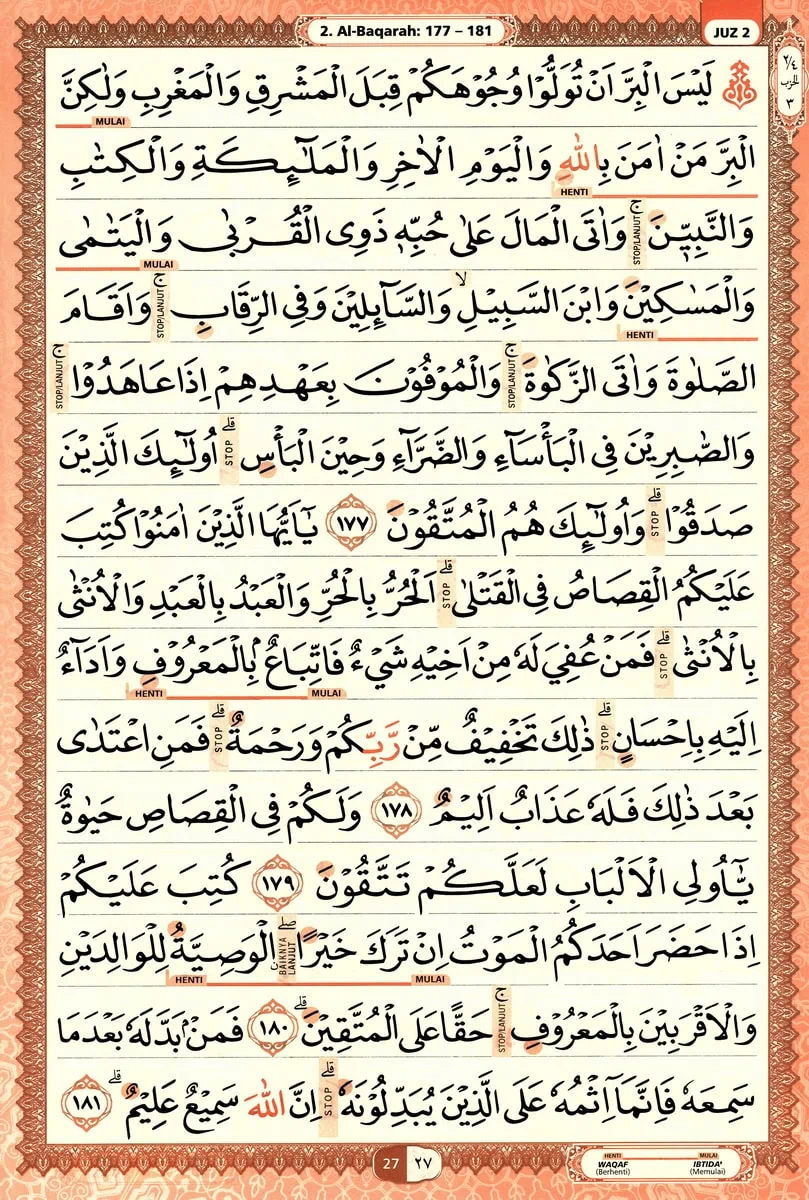 2. Al-Baqarah: 177 – 181
JUZ 2
٢/٤
الحزب
٣
لَيْسَ الْبِرَّ اَنْ تُوَلُّوْا وُجُوْهَكُمْ قِبَلَ الْمَشْرِقِ وَالْمَغْرِبِ وَلٰكِنَّ
MULAI
الْبِرَّ مَنْ اٰمَنَ بِاللّٰهِ وَالْيَوْمِ الْاٰخِرِ وَالْمَلٰۤىِٕكَةِ وَالْكِتٰبِ
HENTI
وَالنَّبِيّٖنَ ۚ وَاٰتَى الْمَالَ عَلٰى حُبِّهٖ ذَوِى الْقُرْبٰى وَالْيَتٰمٰى
STOP/LANJUT
MULAI
وَالْمَسٰكِيْنَ وَابْنَ السَّبِيْلِۙ وَالسَّاۤىِٕلِيْنَ وَفِى الرِّقَابِ ۚ وَاَقَامَ
STOP/LANJUT
HENTI
الصَّلٰوةَ وَاٰتَى الزَّكٰوةَ ۚ وَالْمُوْفُوْنَ بِعَهْدِهِمْ اِذَا عَاهَدُوْا ۚ
STOP/LANJUT STOP/LANJUT
وَالصّٰبِرِيْنَ فِى الْبَأْسَاۤءِ وَالضَّرَّاۤءِ وَحِيْنَ الْبَأْسِ ۗ اُولٰۤىِٕكَ الَّذِيْنَ
STOP
صَدَقُوْا ۗ وَاُولٰۤىِٕكَ هُمُ الْمُتَّقُوْنَ ١٧٧ يٰٓاَيُّهَا الَّذِيْنَ اٰمَنُوْا كُتِبَ
STOP
عَلَيْكُمُ الْقِصَاصُ فِى الْقَتْلٰى ۗ اَلْحُرُّ بِالْحُرِّ وَالْعَبْدُ بِالْعَبْدِ وَالْاُنْثٰى
STOP
بِالْاُنْثٰى ۗ فَمَنْ عُفِيَ لَهٗ مِنْ اَخِيْهِ شَيْءٌ فَاتِّبَاعٌۢ بِالْمَعْرُوْفِ وَاَدَاۤءٌ
STOP
HENTI MULAI
اِلَيْهِ بِاِحْسَانٍ ۗ ذٰلِكَ تَخْفِيْفٌ مِّنْ رَّبِّكُمْ وَرَحْمَةٌ ۗ فَمَنِ اعْتَدٰى
STOP STOP
بَعْدَ ذٰلِكَ فَلَهٗ عَذَابٌ اَلِيْمٌ ١٧٨ وَلَكُمْ فِى الْقِصَاصِ حَيٰوةٌ
يّٰٓاُولِى الْاَلْبَابِ لَعَلَّكُمْ تَتَّقُوْنَ ١٧٩ كُتِبَ عَلَيْكُمْ
اِذَا حَضَرَ اَحَدَكُمُ الْمَوْتُ اِنْ تَرَكَ خَيْرًا ۖ ࣙالْوَصِيَّةُ لِلْوَالِدَيْنِ
BAIKNYA LANJUT
HENTI MULAI
وَالْاَقْرَبِيْنَ بِالْمَعْرُوْفِ ۚ حَقًّا عَلَى الْمُتَّقِيْنَ ۗ ١٨٠ فَمَنْۢ بَدَّلَهٗ بَعْدَمَا
STOP/LANJUT
سَمِعَهٗ فَاِنَّمَآ اِثْمُهٗ عَلَى الَّذِيْنَ يُبَدِّلُوْنَهٗ ۗ اِنَّ اللّٰهَ سَمِيْعٌ عَلِيْمٌ ۗ ١٨١
STOP
27 ٢٧
HENTI MULAI
WAQAF IBTIDA'
(Berhenti) (Memulai)